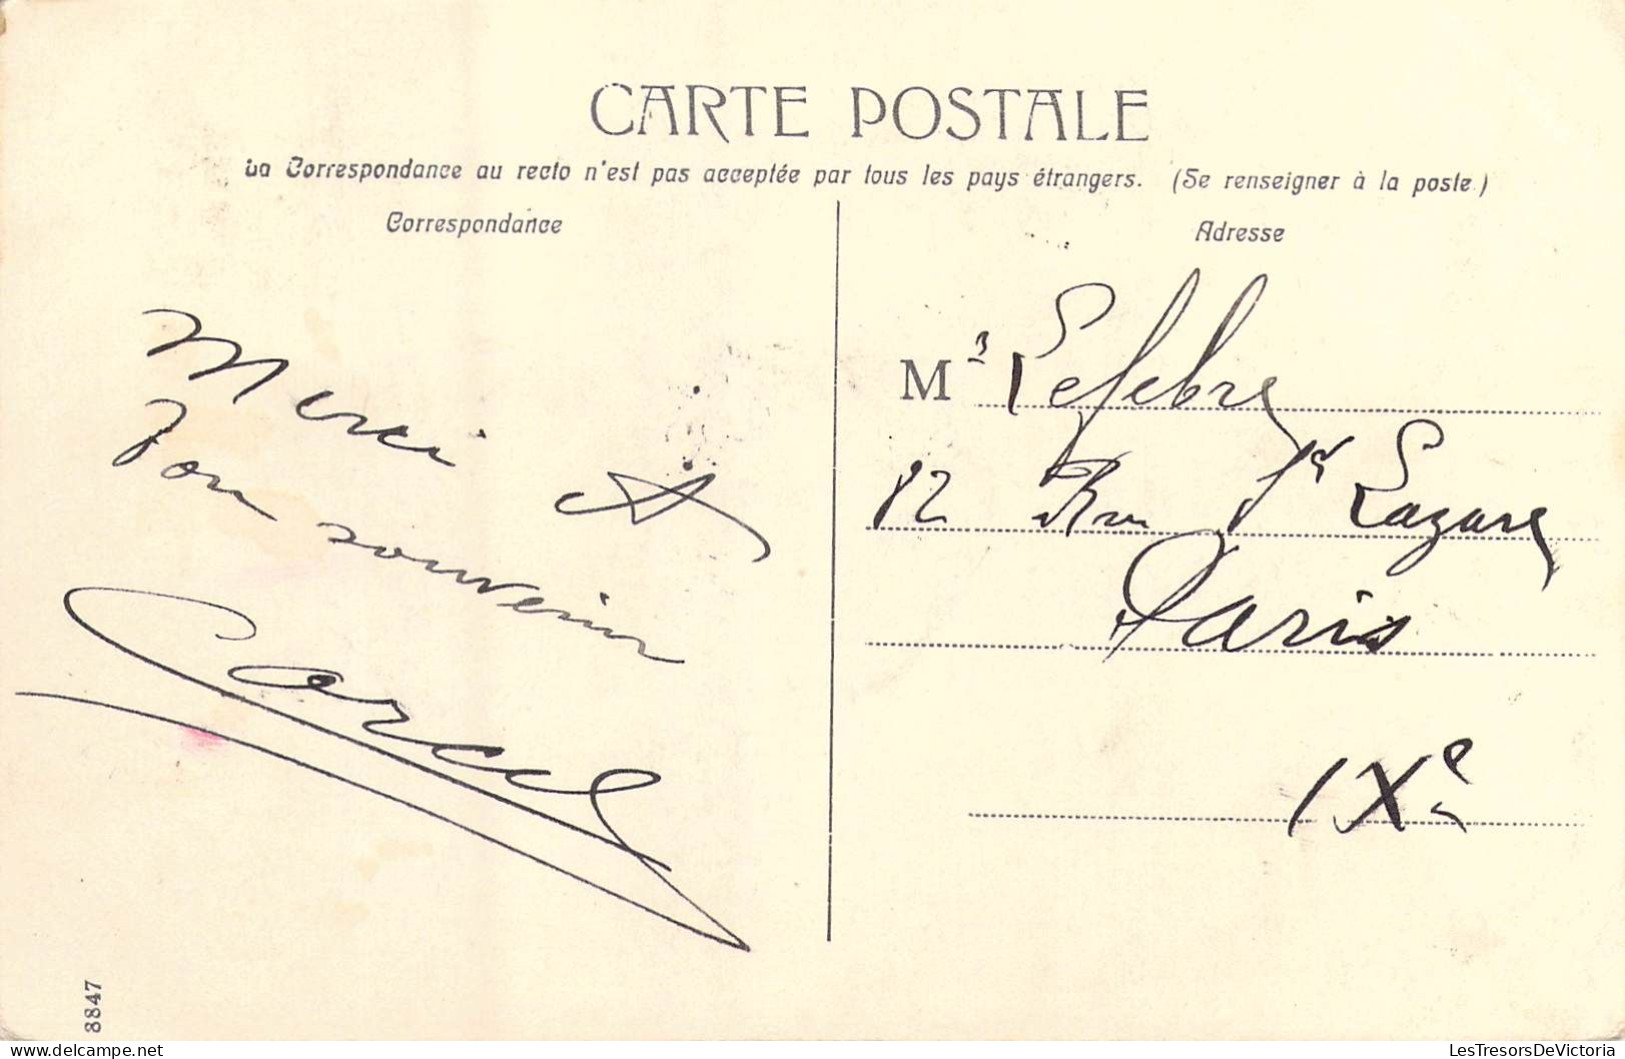 CARTE POSTALE
La Correspondance au recto n'est pas acceptée par tous les pays étrangers. (Se renseigner à la poste.)
Correspondance
Merci &
bon souvenir
Adresse
Mr Lefebvre
82 Rue St Lazare
Paris
IXe
8847
LesTresorsDeVictoria